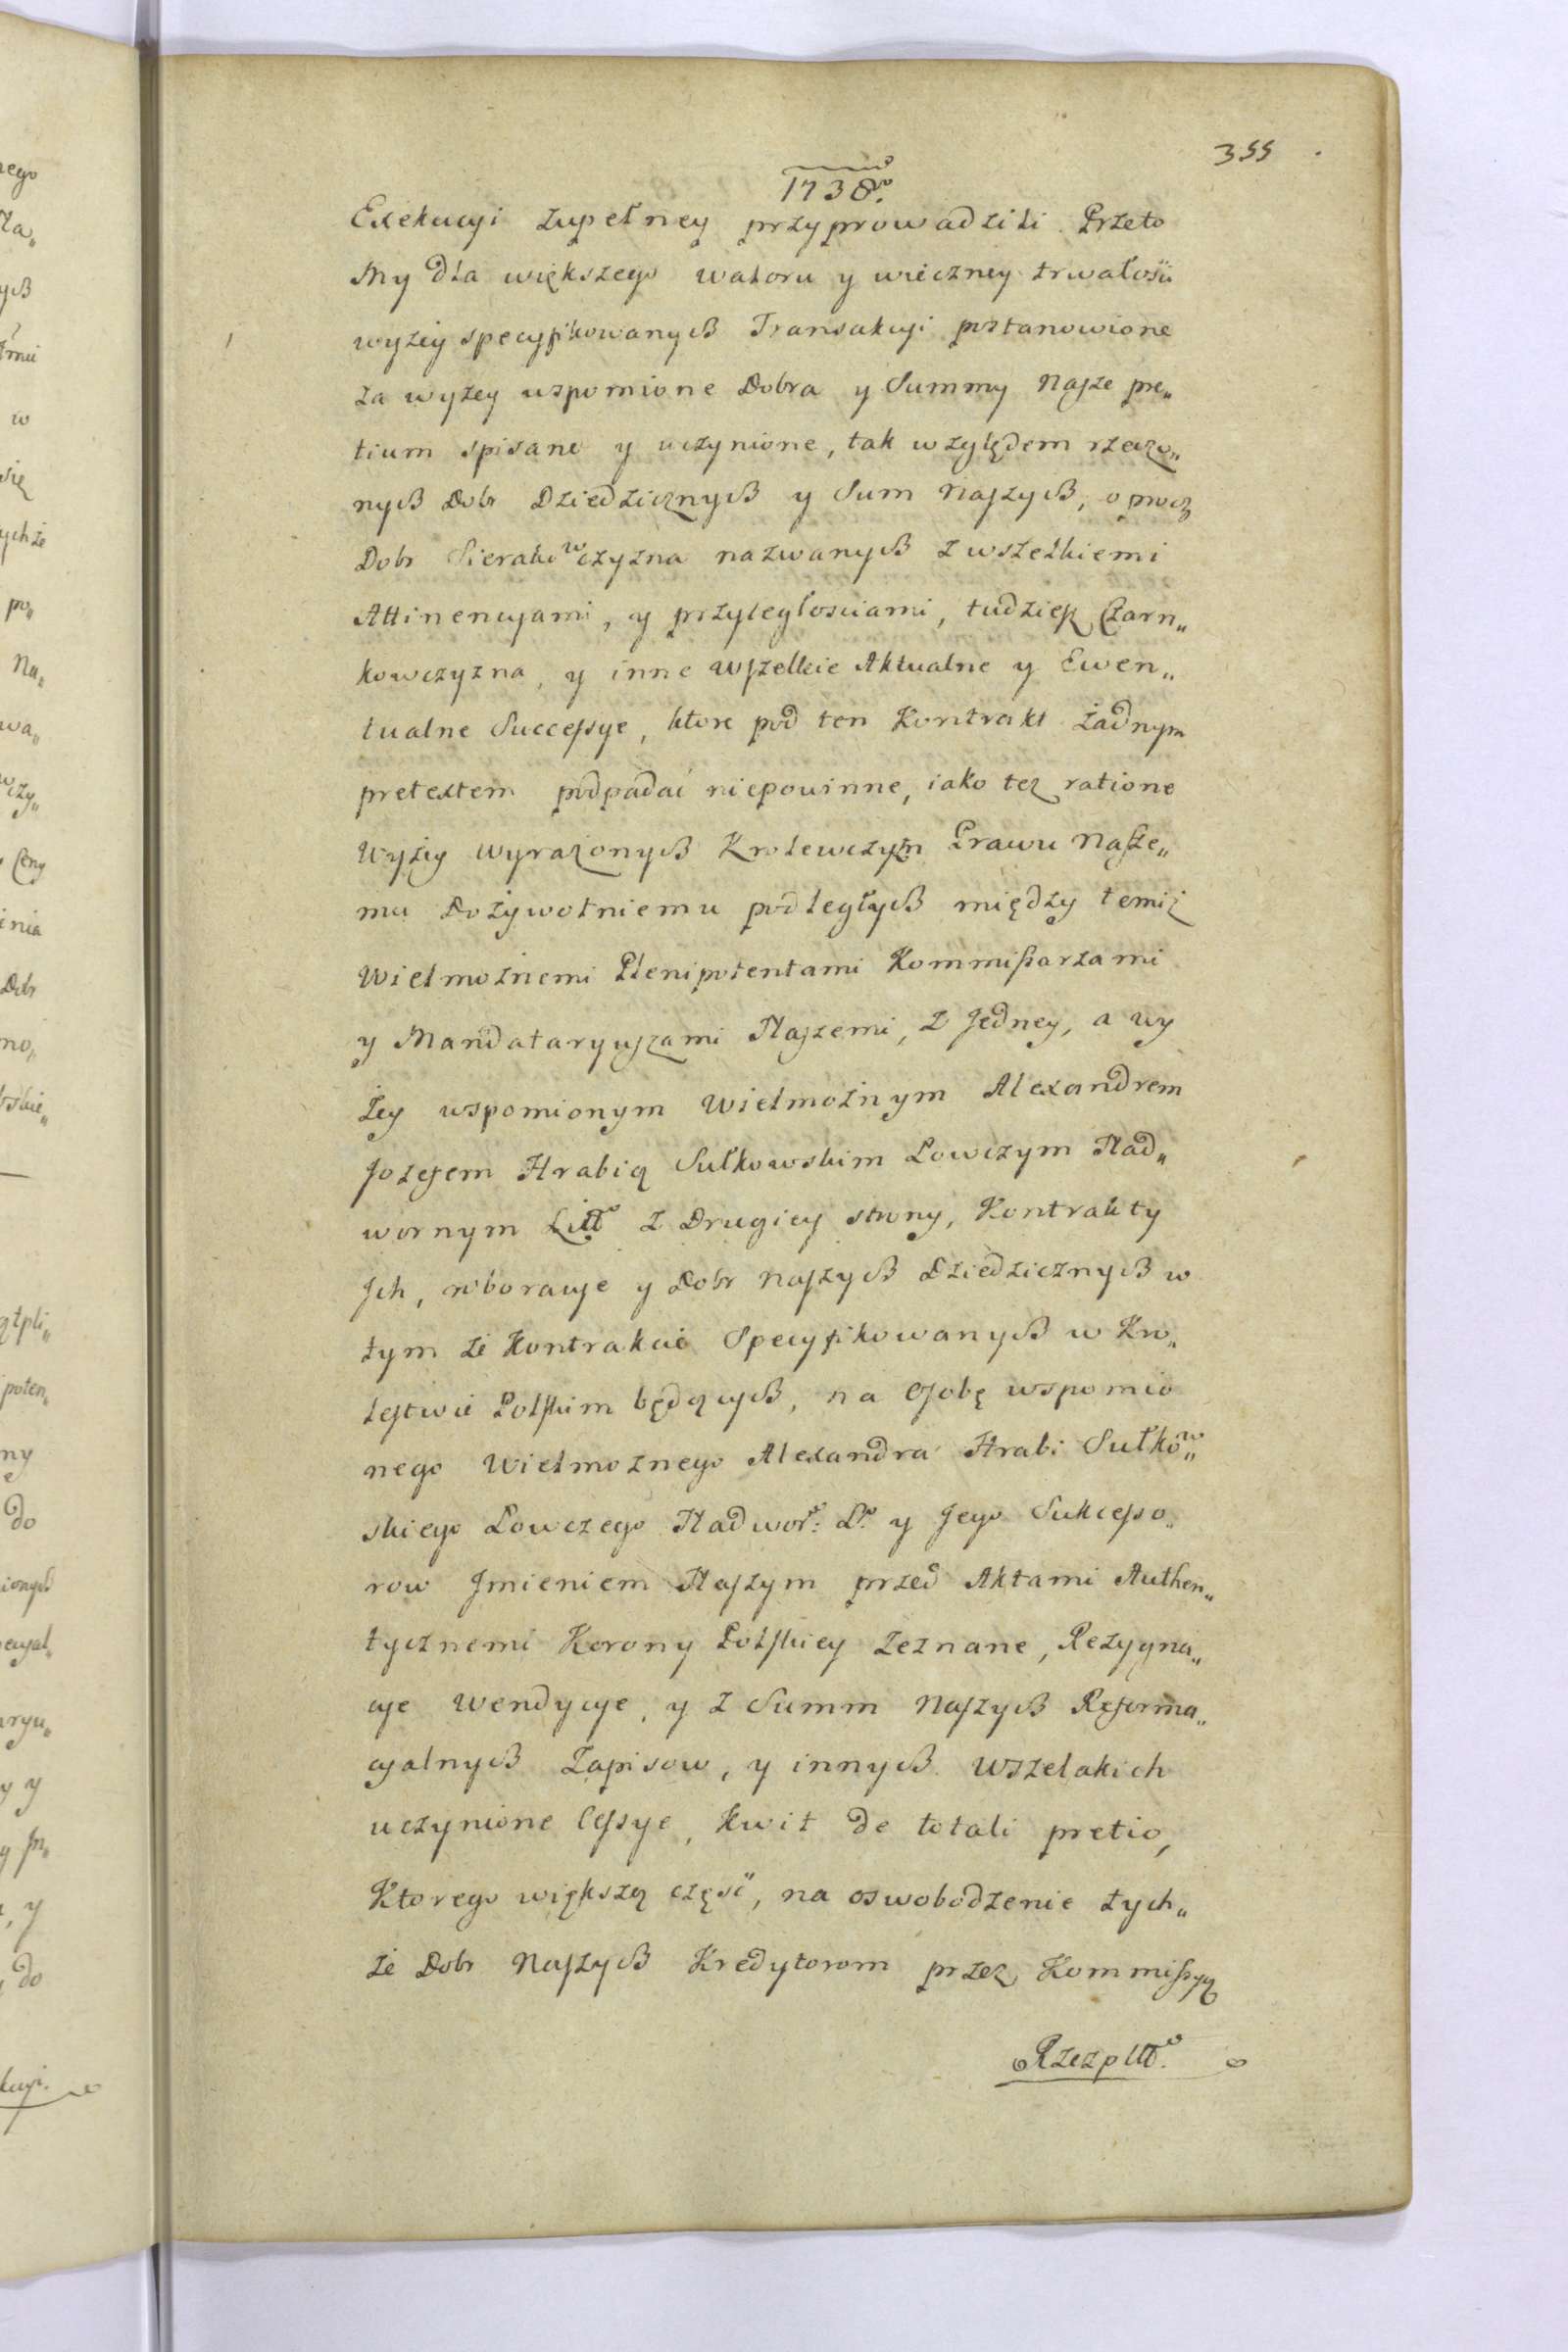 355
1738º.
Exekucyi zupełney przyprowadzili. Przeto
My dla większego waloru y wieczney trwałosći
wyżey specyfikowanych Transakcyi postanowione
za wyżey wspomione Dobra y Summy Nasze pre„
tium spisane y uczynione, tak względem rzeczo„
nych Dobr Dziedzicznych y Sum Naszych, oprocz
Dobr Sierakowczyzna nazwanych z wszelkiemi
Attinencyami, y przyległosciami, tudziesz Czarn„
kowczyzna, y inne wszelkie Aktualne y Ewen„
tualne Successye, ktore pod ten Kontrakt żadnym
pretextem podpadać niepowinne, iako tez ratione
Wyżey wyrażonych Krolewczyzn Prawu Nasze„
mu Dożywotniemu podległych między temiż
Wielmożnemi Plenipotentami Kommissarzami
y Mandataryuszami Naszemi, z Jedney, a wy
żey wspomionym Wielmożnym Alexandrem
Jozefem Hrabią Sułkowskim Łowczym Nad„
wornym Littº z Drugiey strony, Kontrakty
Jch, roboracye y Dobr Naszych Dziedzicznych w
tym że Kontrakcie Specyfikowanych w Kro„
lestwie Polskim będących, na Osobę wspomio
nego Wielmoznego Alexandra Hrabi Sułkow„
skiego Łowczego Nadworº: Lº. y Jego Sukcesso„
row Jmieniem Naszym przed Aktami Authen„
tycznemi Korony Polskiey zeznane, Rezygna„
cye Wendycye, y z Summ Naszych Reforma„
cyalnych Zapisow, y innych wszelakich
uczynione Cessye, Kwit de totali pretio,
Ktorego większą część, na oswobodzenie tych„
że Dobr Naszych Kredytorom przez Kommissyą
Rzezpltº.